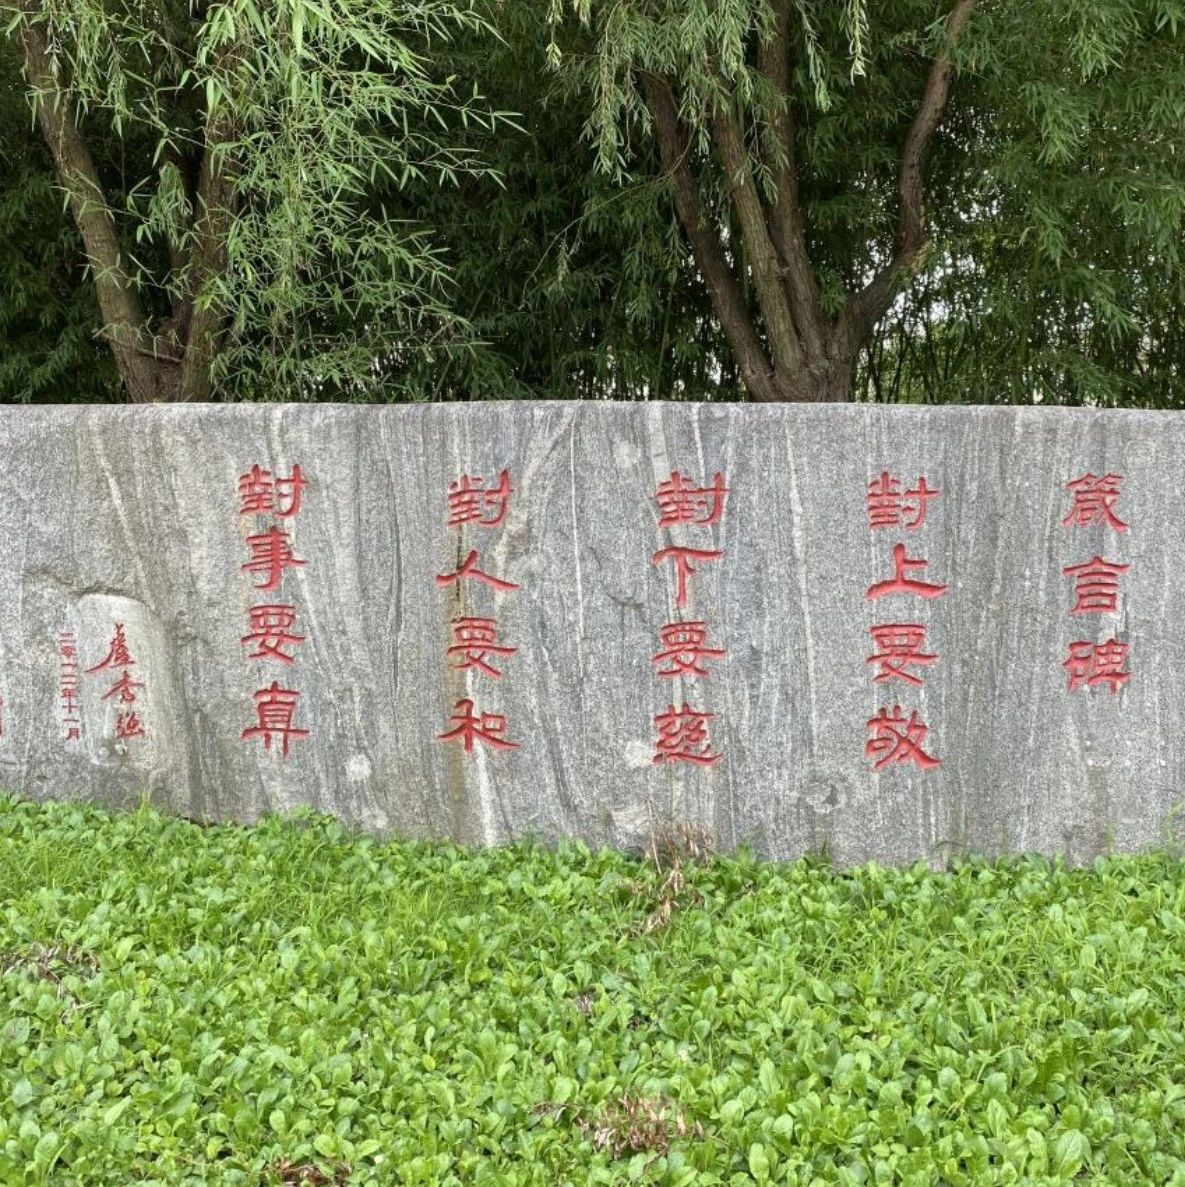 箴言碑
對上要敬
對下要慈
對人要和
對事要真
盧秀強
二零一二年十一月